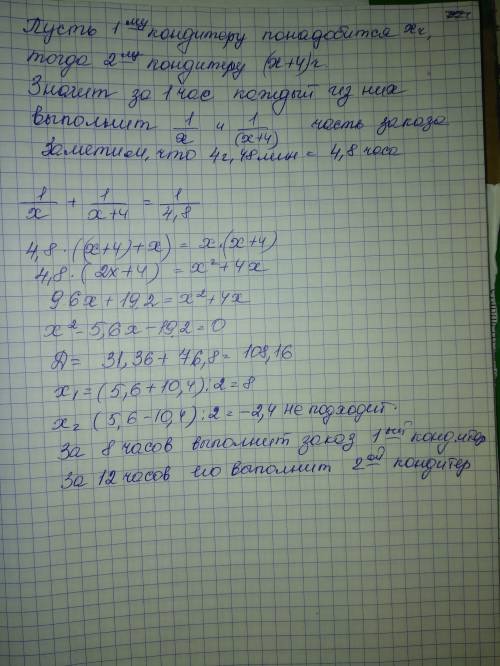 Пусть 1му кондитеру понадобится x ч,
тогда 2му кондитеру (x+4) ч.
Значит за 1 час каждый из них
выполнит 1/x и 1/(x+4) часть заказа
Заметим, что 4ч, 48 мин = 4,8 часа
1/x + 1/(x+4) = 1/4,8
4,8 · ((x+4)+x) = x·(x+4)
4,8 · (2x+4) = x²+4x
9,6x + 19,2 = x²+4x
x² - 5,6x - 19,2 = 0
Д = 31,36 + 76,8 = 108,16
x₁ = (5,6+10,4):2 = 8
x₂ (5,6-10,4):2 = -2,4 не подходит.
За 8 часов выполнит заказ 1ый кондитер
За 12 часов его выполнит 2ой кондитер